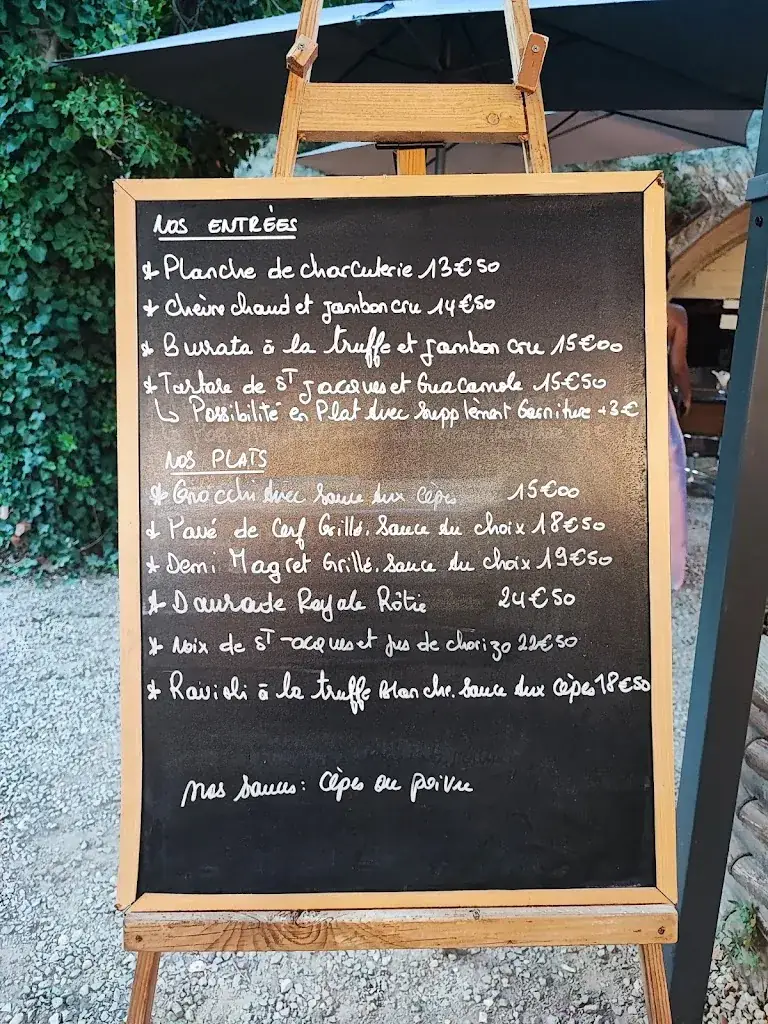 NOS ENTRÉES
* Planche de charcuterie 13€50
* Chèvre chaud et jambon cru 14€50
* Burrata à la truffe et jambon cru 15€00
* Tartare de ST Jacques et Guacamole 15€50
↳ Possibilité en Plat avec supplément Garniture +3€
NOS PLATS
* Gnocchi avec sauce aux cèpes 15€00
* Pavé de Cerf Grillé. Sauce au choix 18€50
* Demi Magret Grillé. Sauce au choix 19€50
* Daurade Royale Rôtie 24€50
* Noix de ST-Jacques et jus de chorizo 22€50
* Ravioli à la truffe Blanche. Sauce aux cèpes 18€50
Nos sauces: Cèpes ou poivre